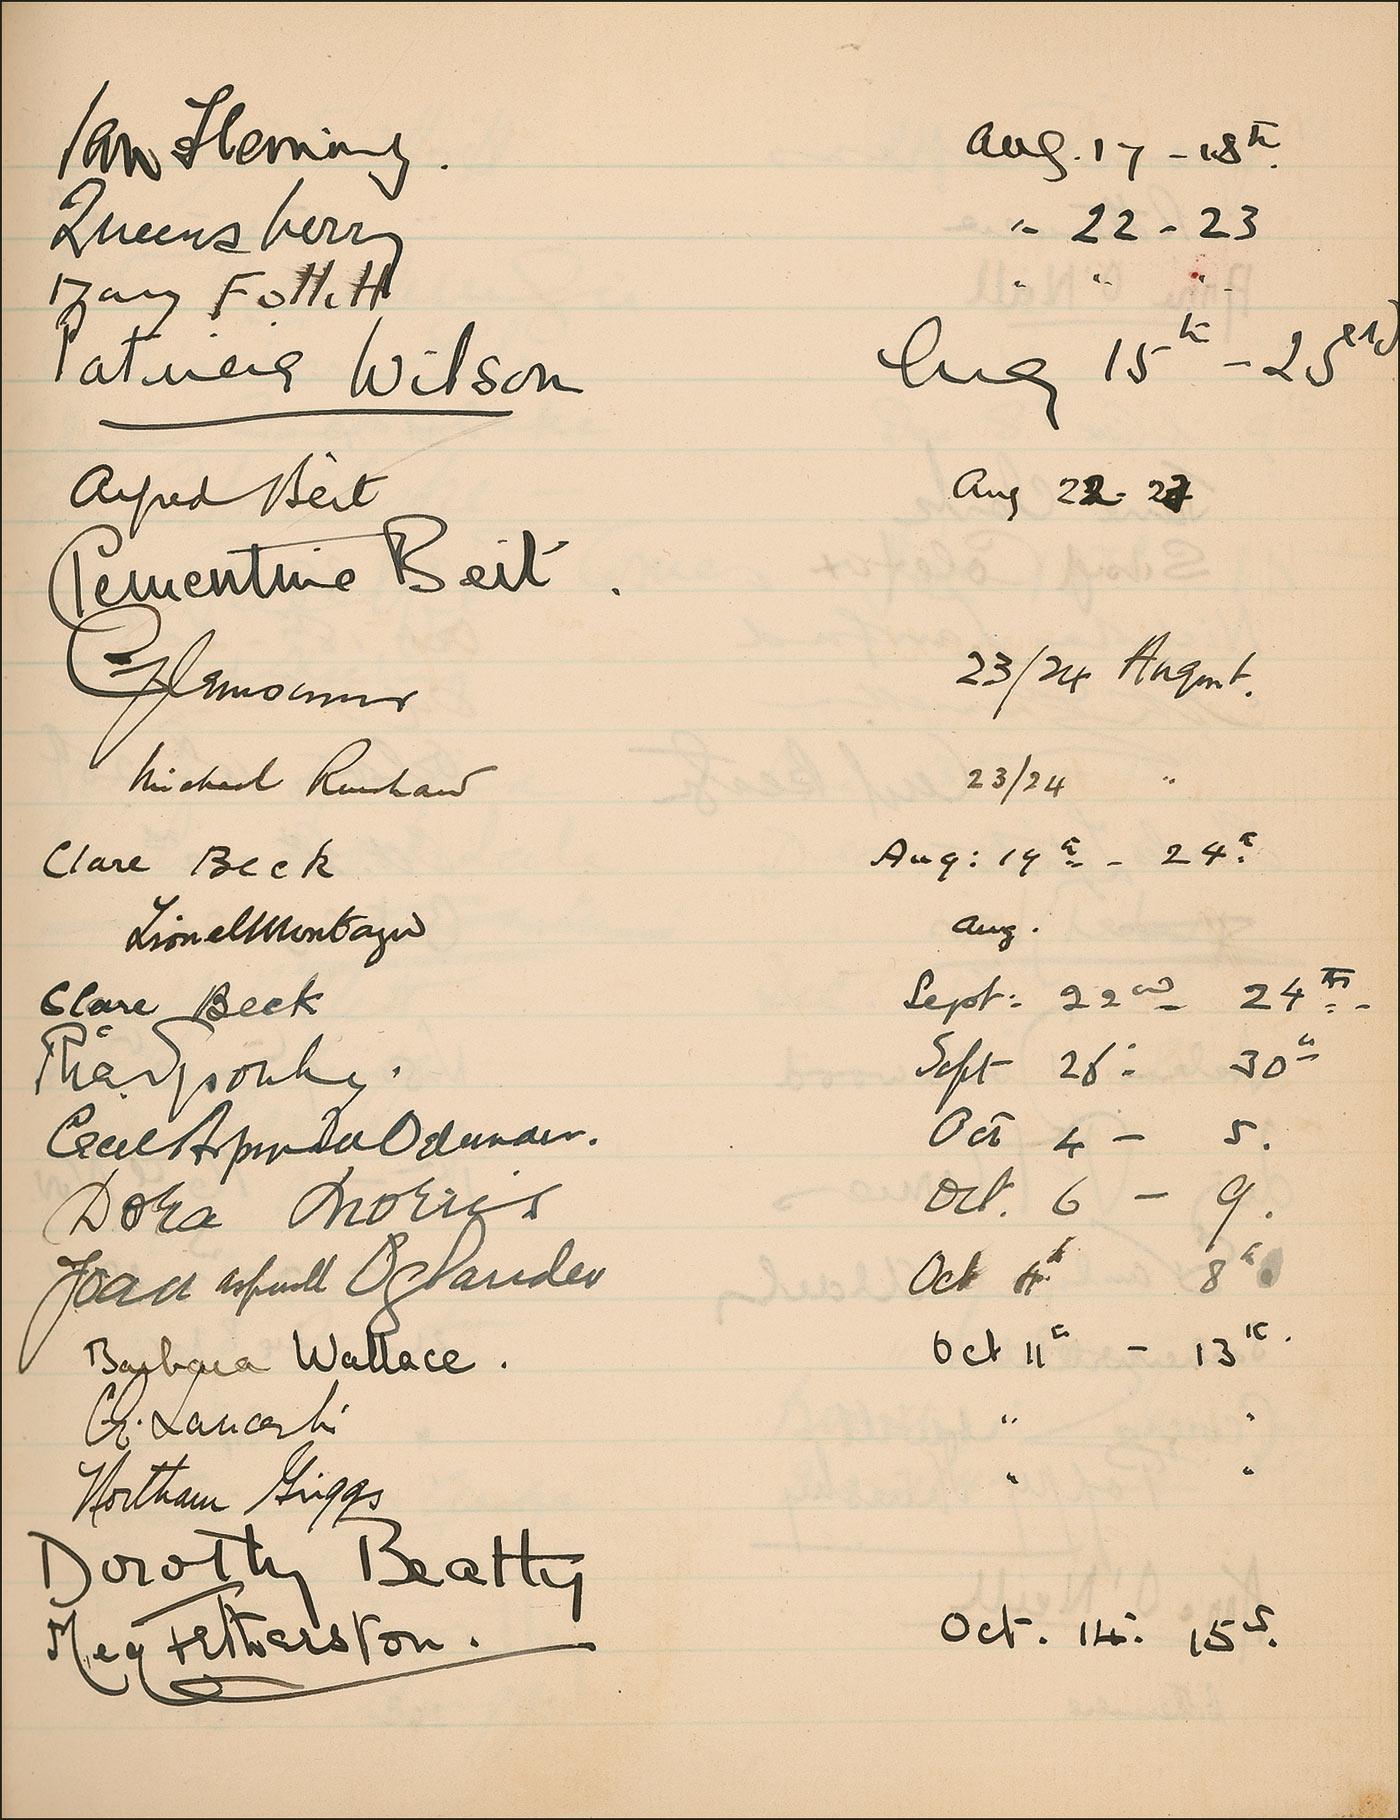 Ian Fleming. Aug. 17 - 18th.
Queensberry " 22 - 23
Mary Follett " " "
Patricia Wilson Aug 15th - 23rd
Alfred Beit Aug 22 - 27
Clementine Beit.
23/24 August.
Michael Renshaw 23/24 "
Clare Beck Aug: 19th - 24th
Lionel Montagu Aug.
Clare Beck Sept: 22nd 24th -
Sept 28th 30th
Cecil Oct 4 - 5.
Dora Morris Oct. 6 - 9.
Joan Aspinall Oglander Oct 4th 8th
Barbara Wallace. Oct 11th - 13th.
" "
Northam Griggs " "
Dorothy Beatty
Meg Fetherston. Oct. 14th 15th.